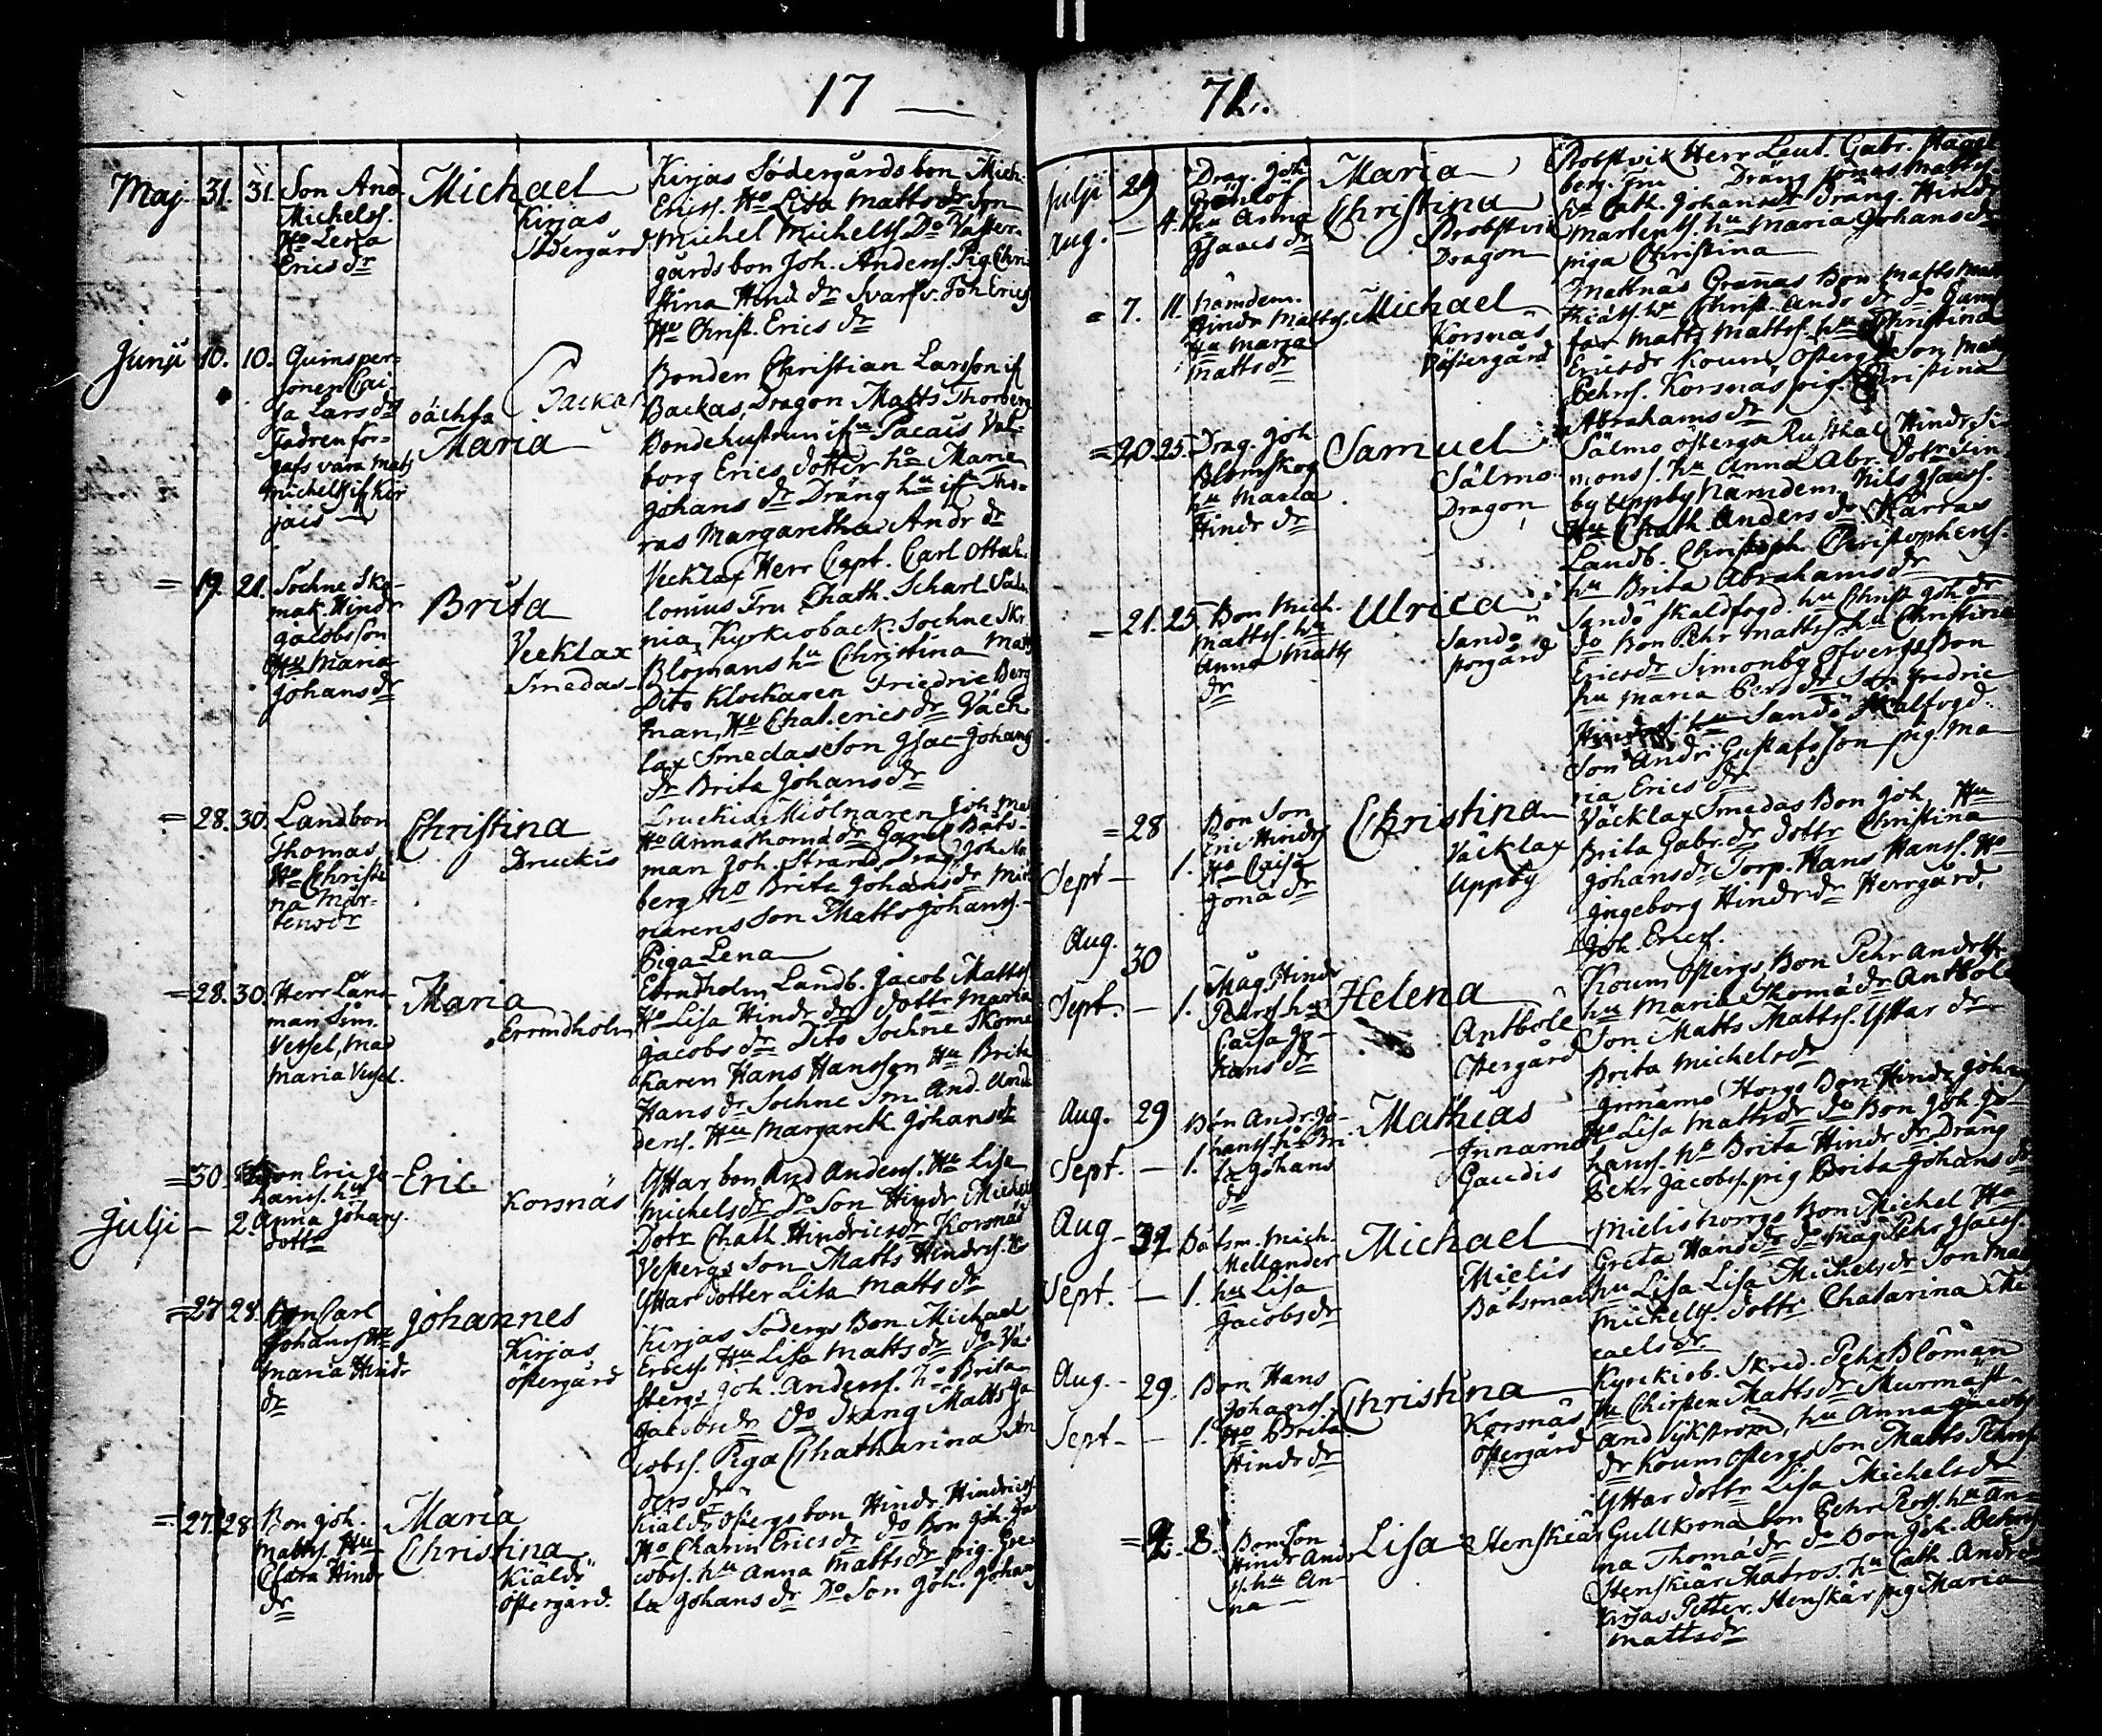 17 — 71.
Maj. 31. 31. Son And.
Michelss.
Hu Lena
Ericsdr
Michael
Kirjas
Södergård
Kirjas Södergårds bon Mich.
Ericss. Hu Lisa Mattsdr Son
Michel Michelss. Do Väster-
gårds bon Joh. Anderss. Pig. Chri-
stina Hind. dr Svarfv. Joh Ericss
Hu Christ. Erics dr
Junii 10. 10. Quinsper-
sonen Cai-
sa Larsdr
Fadren för-
gafs vara Matts
Michelss if. Kir
jais —
oächta
Maria
Backas
Bonden Christian Larsson if.
Backas, Dragon Matts Thorberg
Bondehustrun if. Pacais Val-
borg Erics dotter hu Maria
Johans dr Dräng hu if.
ras Margaretha Andr dr
= 19. 21. Sochne Sko-
mak. Hindr
Jacobsson
Hu Maria
Johansdr
Brita
Vecklax
Smedas
Vecklax Herr Capt. Carl Otto
lonius Fru Chath. Scharl.
nia, Kyrkioback. Sochne Skr.
Blomans hu Christina Matts
Dito Klockaren Friedric Berg
man, Hu Chat. ericsdr Väck-
lax Smedas Son Isac Johans
dr Brita Johansdr
= 28. 30. Landbon
Thomas
Hu Christi
na Mår-
tensdr
Christina
Druckis
Druckis Miölnaren Joh. Ma
Hu Anna Thoma dr Gamel Båts-
man Joh. Strand, Drag. Joh. No
berg hu Brita Johansdr Miöl
narens Son Matts Johanss.
Piga Lena
= 28. 30. Herr Läns-
man Sim.
Vessel, Mad
Maria Vessel.
Maria
Errndholm
Errndholm Landb. Jacob Mattss
Hu Lisa Hindr dr dottr Maria
Jacobs dr Dito Sochne Skoma
karen Hans Hansson Hu Brita
Hans dr Sochne Sm. And. And
derss. Hu Margaret Johansdr
= 30. Bon Eric Jo-
hanss. hu
Julii — 2. Anna Johans.
dottr
Eric
Korsnäs
Yttar bon And Anderss. Hu Lisa
Michelsdr do Son Hindr Michelss
Dotr Chath. Hindricsdr Korsnäs
Vesterg. Son Matts Hindrss.
Yttar dotter Lisa Matts dr
= 27 28. Bon Carl
Johanss Hu
Maria Hindr
dr
Johannes
Kirjas
Östergård
Kirjas Söderg. Bon Michael
Ericss. Hu Lisa Matts dr do Vä-
sterg. Joh. Anderss. hu Brita
Jacobsdr Do Dräng Matts Ja
cobss. Piga Chatharina An
ders dr
= 27. 28. Bon Joh.
Mattss. Hu
Clara Hindr
dr
Maria
Christina
Kialdö
Östergård.
Kialdö Österg. bon Hindr. Hindricss.
Hu Charin Ericsdr do Bon Joh. Ja-
cobss. hu Anna Mattsdr pig. Gre-
ta Johans dr Do Son Joh. Johans
Julii 29 Drag. Joh
Grönlöf
Aug. — 4. Hu Anna
Isaacsdr
Maria
Christina
Probstvik
Dragon
Probstvik Herr Leut. Gabr. Hagel
berg. Fru Dräng Jonas Mattss
hu Cath. Johansdr Dräng. Hindr
Martenss. hu Maria Johansdr
piga Christina
= 7. 11. Nämdem.
Hindr Mattss.
Hu Maria
Mattsdr
Michael
Korsnäs
Västergård
Mattnäs Grannas Bon Matts
hu Christ. Andr dr do Gam
far Matts Mattss. hu Christina
Ericsdr Koum Österg. Son Matts
Pehrs. Korsnäs pig. Christina
Abrahamsdr
= 20. 25. Drag. Joh
Blomskog
hu Maria
Hindr dr
Samuel
Sälmo
Dragon
Sälmo Österga Rusthål. Hindr Si-
monss. hu Anna Abr. Dotr Sim
by Uppby Nämdem. Nils Isacss.
Hu Chath Anders dr Kärras
Landb. Christoph. Christophers.
hu Brita Abrahamsdr
= 21. 25. Bon Mich.
Mattss. hu
Anna Matts
dr
Ulrica
Sandö
Norgård
Sandö Skaldfogd. hu Christ Joh dr
do Bon Pehr Mattss. hu Christina
Ericsdr Simonby Öfvergs Bon
hu Maria Persdr Son Fredric
hu Sandö Skalfogd.
Son Andr Gustafsson pig. Ma
ria Erics dr
= 28 Bon Son
Eric Hindrss
Sept — 1. Hu Caisa
Jona dr
Christina
Väcklax
Uppby
Väcklax Smedas Bon Joh Hu
Brita Gabr. dr dottr Christina
Johansdr Torp. Hans Hanss. Hu
Ingeborg Hindrsdr Herrgård.
Joh. Ericss.
Aug. 30 Måg. Hindr
Sept. — 1. Pehrss hu
Caisa Jo-
hansdr
Helena
Antböle
Östergård
Koum Östergs Bon Pehr Andrss
hu Maria Thoma dr Antböle
Son Matts Mattss. Yttar dr
Brita Michelsdr
Aug. 29 Bon Andr. Jo-
Sept. — 1. hanss. hu Bri
ta Johans
dr
Mathias
Innamo
Gaudis
Innamo Horgs Bon Hindr Johans
Hu Lisa Mattsdr do Bon Joh Jo
hanss. hu Brita Hindr dr Dräng
Pehr Jacobss. pig Brita Johansdr
Aug — 31. Båtsm. Mich.
Mellander
Sept. — 1. hu Lisa
Jacobsdr
Michael
Mielis
Båtsman
Mielis norrgs Bon Michel Hu
Greta Hansdr do måg Pehr Isacss.
hu Lisa Lisa Michelsdr Son Mat
Michelss. dottr Chatarina Mi
caelsdr
Aug. — 29. Bon Hans
Johanss.
Sept — — 1. Hu Brita
Hindr dr
Christina
Korsnäs
Östergård
Kyrckiob. Skred. Pehr Bloman
Hu Chirsten Mattsdr Murmäst.
And Sykström, hu Anna Jacobs
dr Koum Östergs Son Matts Pehrss
Yttar dottr Lisa Michelsdr
= 2. 8. Bon Son
Hindr And
s. hu An-
na —
Lisa
Henskiär
Gullkrona bon Pehr Ross. hu An-
na Thoma dr do Bon Joh. Pehrss
Henskiär Matros. hu Cath. Andr dr
Kirjas Petter. Henskär pig Maria
Mattsdr